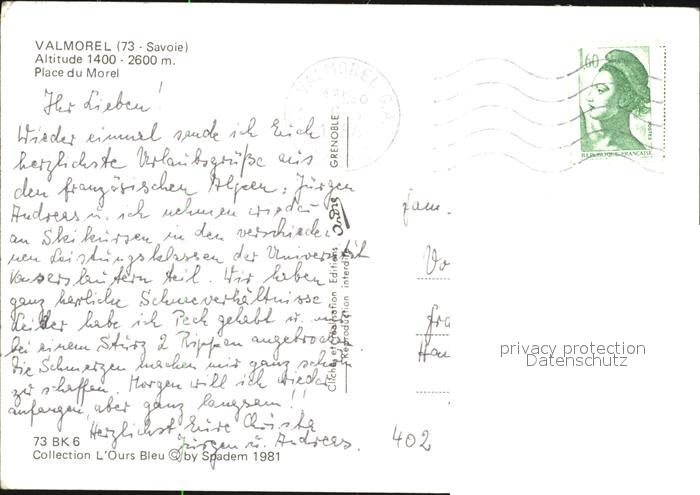 VALMOREL (73 - Savoie)
Altitude 1400 - 2600 m.
Place du Morel
Ihr Lieben!
Wieder einmal sende ich Euch
herzlichste Urlaubsgrüße aus
den französischen Alpen. Jürgen
Andreas u. ich nehmen wieder
an Skikursen in den verschiede-
nen Leistungsklassen der Universität
Kaiserslautern teil. Wir haben
ganz herrliche Schneeverhältnisse
Leider habe ich Pech gehabt u. mir
bei einem Sturz 2 Rippen angebrochen.
Die Schmerzen machen mir ganz schön
zu schaffen. Morgen will ich wieder
anfangen, aber ganz langsam!!
Herzlichst Eure Christa
Jürgen u. Andreas.
73 BK 6
Collection L'Ours Bleu © by Spadem 1981
VALMOREL
GRENOBLE
Clichés et Réalisation Editions
Reproduction interdite
1,60
POSTES
REPUBLIQUE FRANCAISE
Fam.
402
privacy protection
Datenschutz